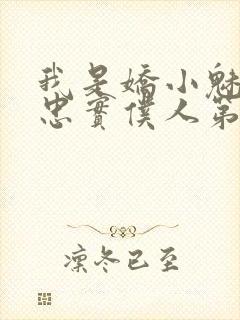 我是嬌小魅
忠實僕人第
凜冬已至